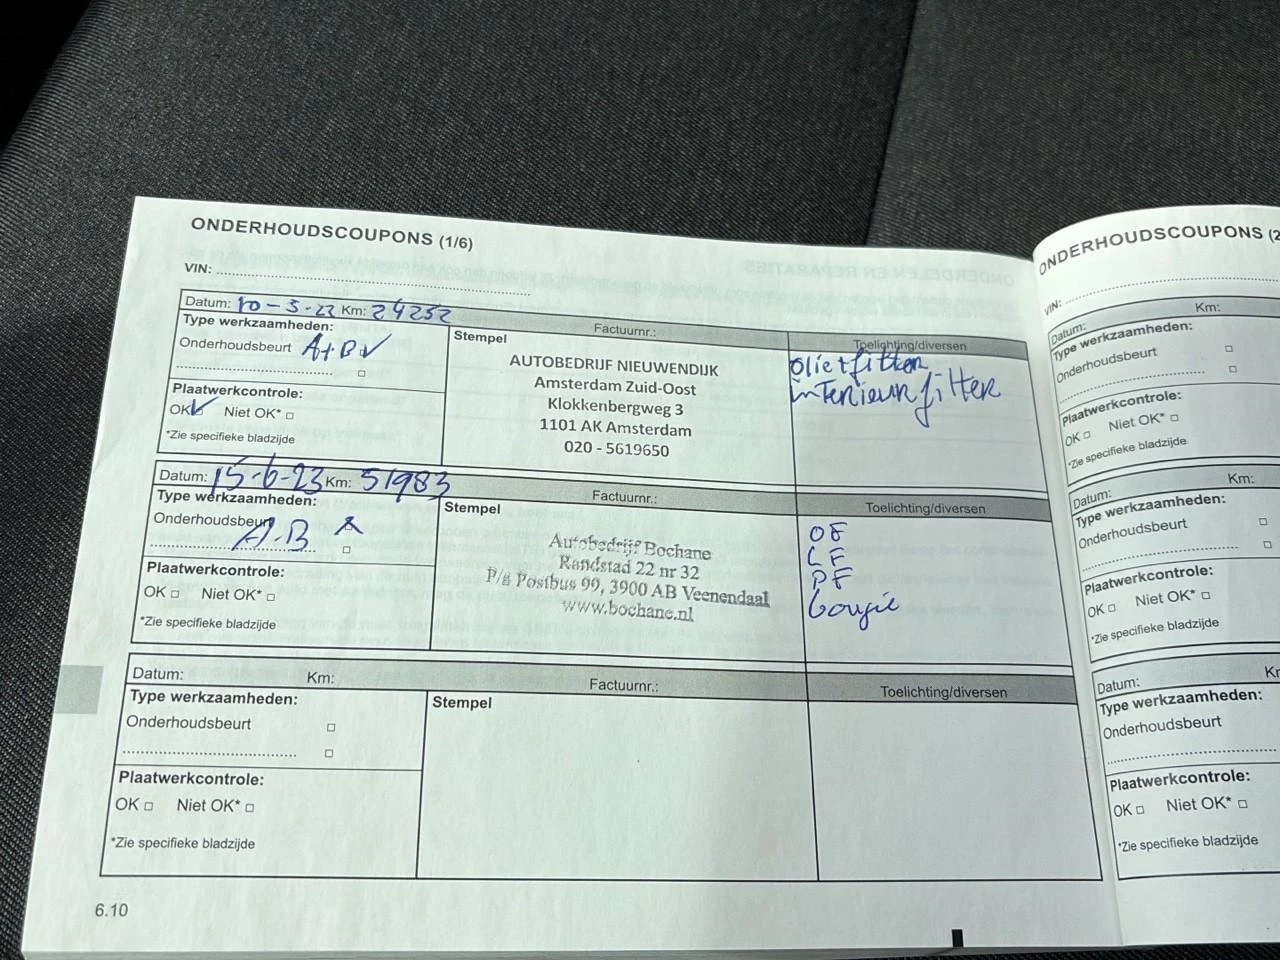 ONDERHOUDSCOUPONS (1/6)
VIN:
Datum: 10-5-22 Km: 24252 Factuurnr.: Toelichting/diversen
Type werkzaamheden:
Onderhoudsbeurt A+B
Plaatwerkcontrole:
OK Niet OK*
*Zie specifieke bladzijde
Stempel
AUTOBEDRIJF NIEUWENDIJK
Amsterdam Zuid-Oost
Klokkenbergweg 3
1101 AK Amsterdam
020 - 5619650
olie+filter
interieur filter
Datum: 15-6-23 Km: 51983 Factuurnr.: Toelichting/diversen
Type werkzaamheden:
Onderhoudsbeurt
A.B
Plaatwerkcontrole:
OK Niet OK*
*Zie specifieke bladzijde
Stempel
Autobedrijf Bochane
Randstad 22 nr 32
P/a Postbus 99, 3900 AB Veenendaal
www.bochane.nl
OF
LF
PF
bougie
Datum: Km: Factuurnr.: Toelichting/diversen
Type werkzaamheden:
Onderhoudsbeurt
Plaatwerkcontrole:
OK Niet OK*
*Zie specifieke bladzijde
Stempel
6.10
ONDERHOUDSCOUPONS (2
VIN:
Datum: Km:
Type werkzaamheden:
Onderhoudsbeurt
Plaatwerkcontrole:
OK Niet OK*
*Zie specifieke bladzijde
Datum: Km:
Type werkzaamheden:
Onderhoudsbeurt
Plaatwerkcontrole:
OK Niet OK*
*Zie specifieke bladzijde
Datum:
Type werkzaamheden:
Onderhoudsbeurt
Plaatwerkcontrole:
OK Niet OK*
*Zie specifieke bladzijde